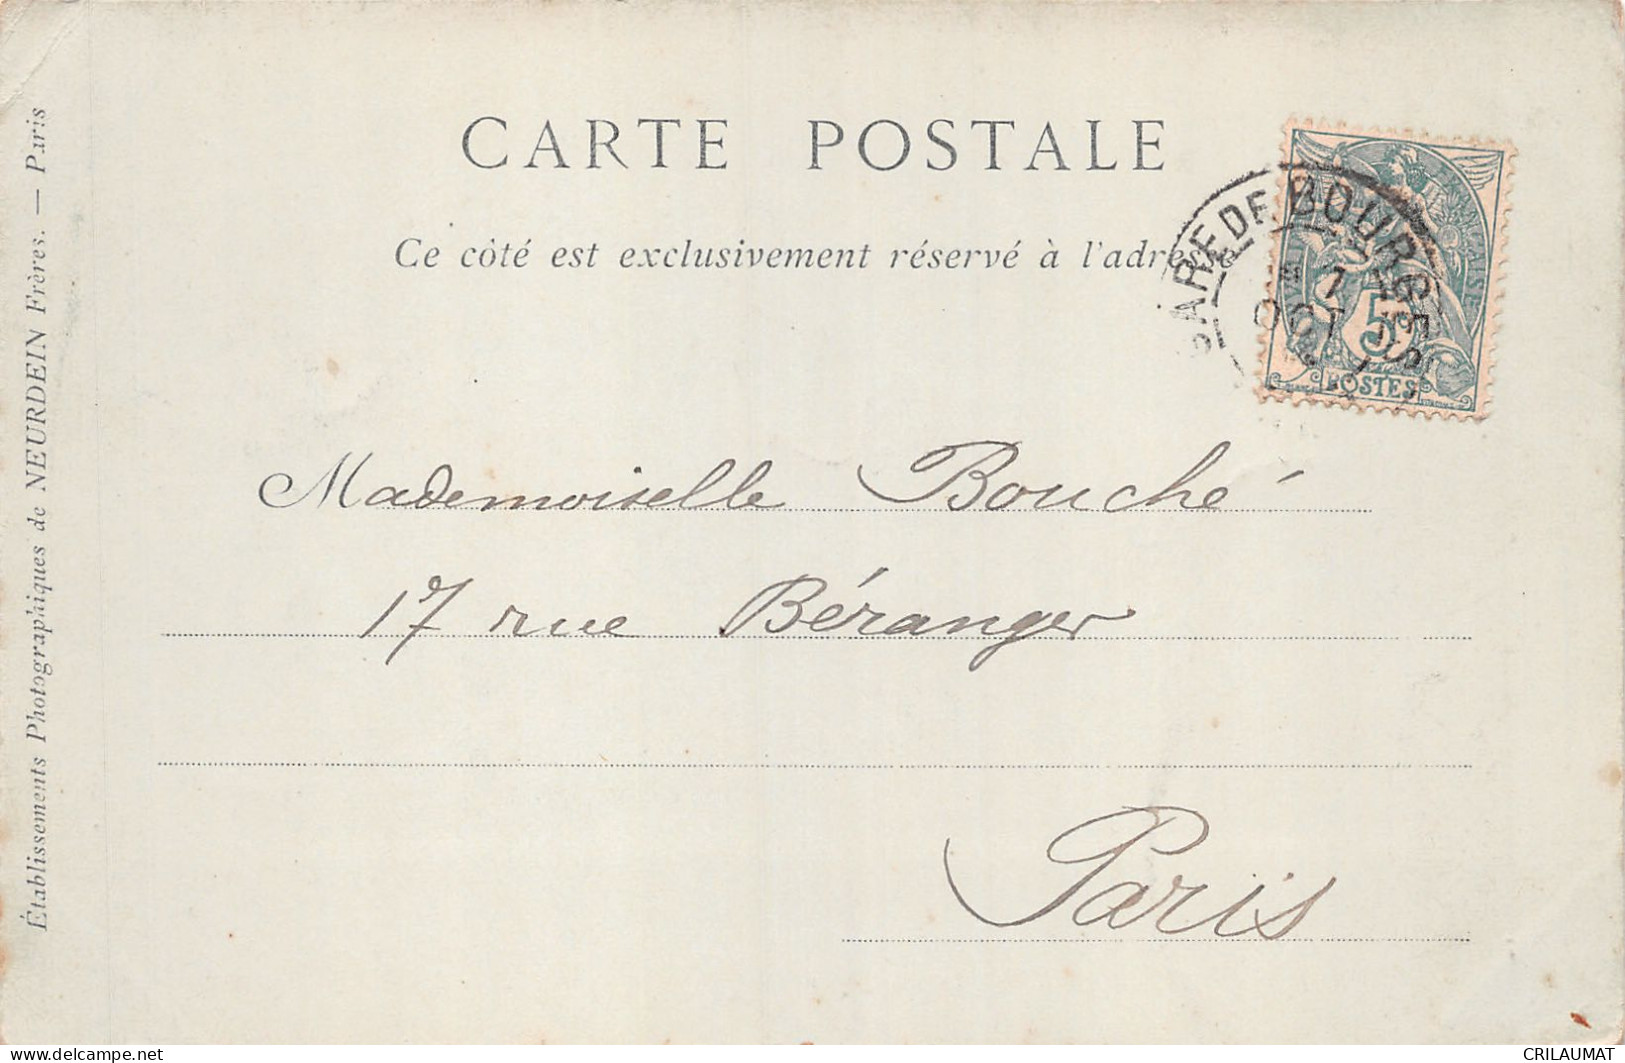 CARTE POSTALE
Ce côté est exclusivement réservé à l'adresse
GARE DE BOURGES
OCT
5c
POSTES
Mademoiselle Bouché
17 rue Béranger
Paris
Établissements Photographiques de NEURDEIN Frères. — Paris
www.delcampe.net
CRILAUMAT